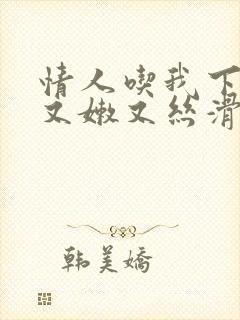 情人喫我下
又嫩又丝滑
韩美嬌